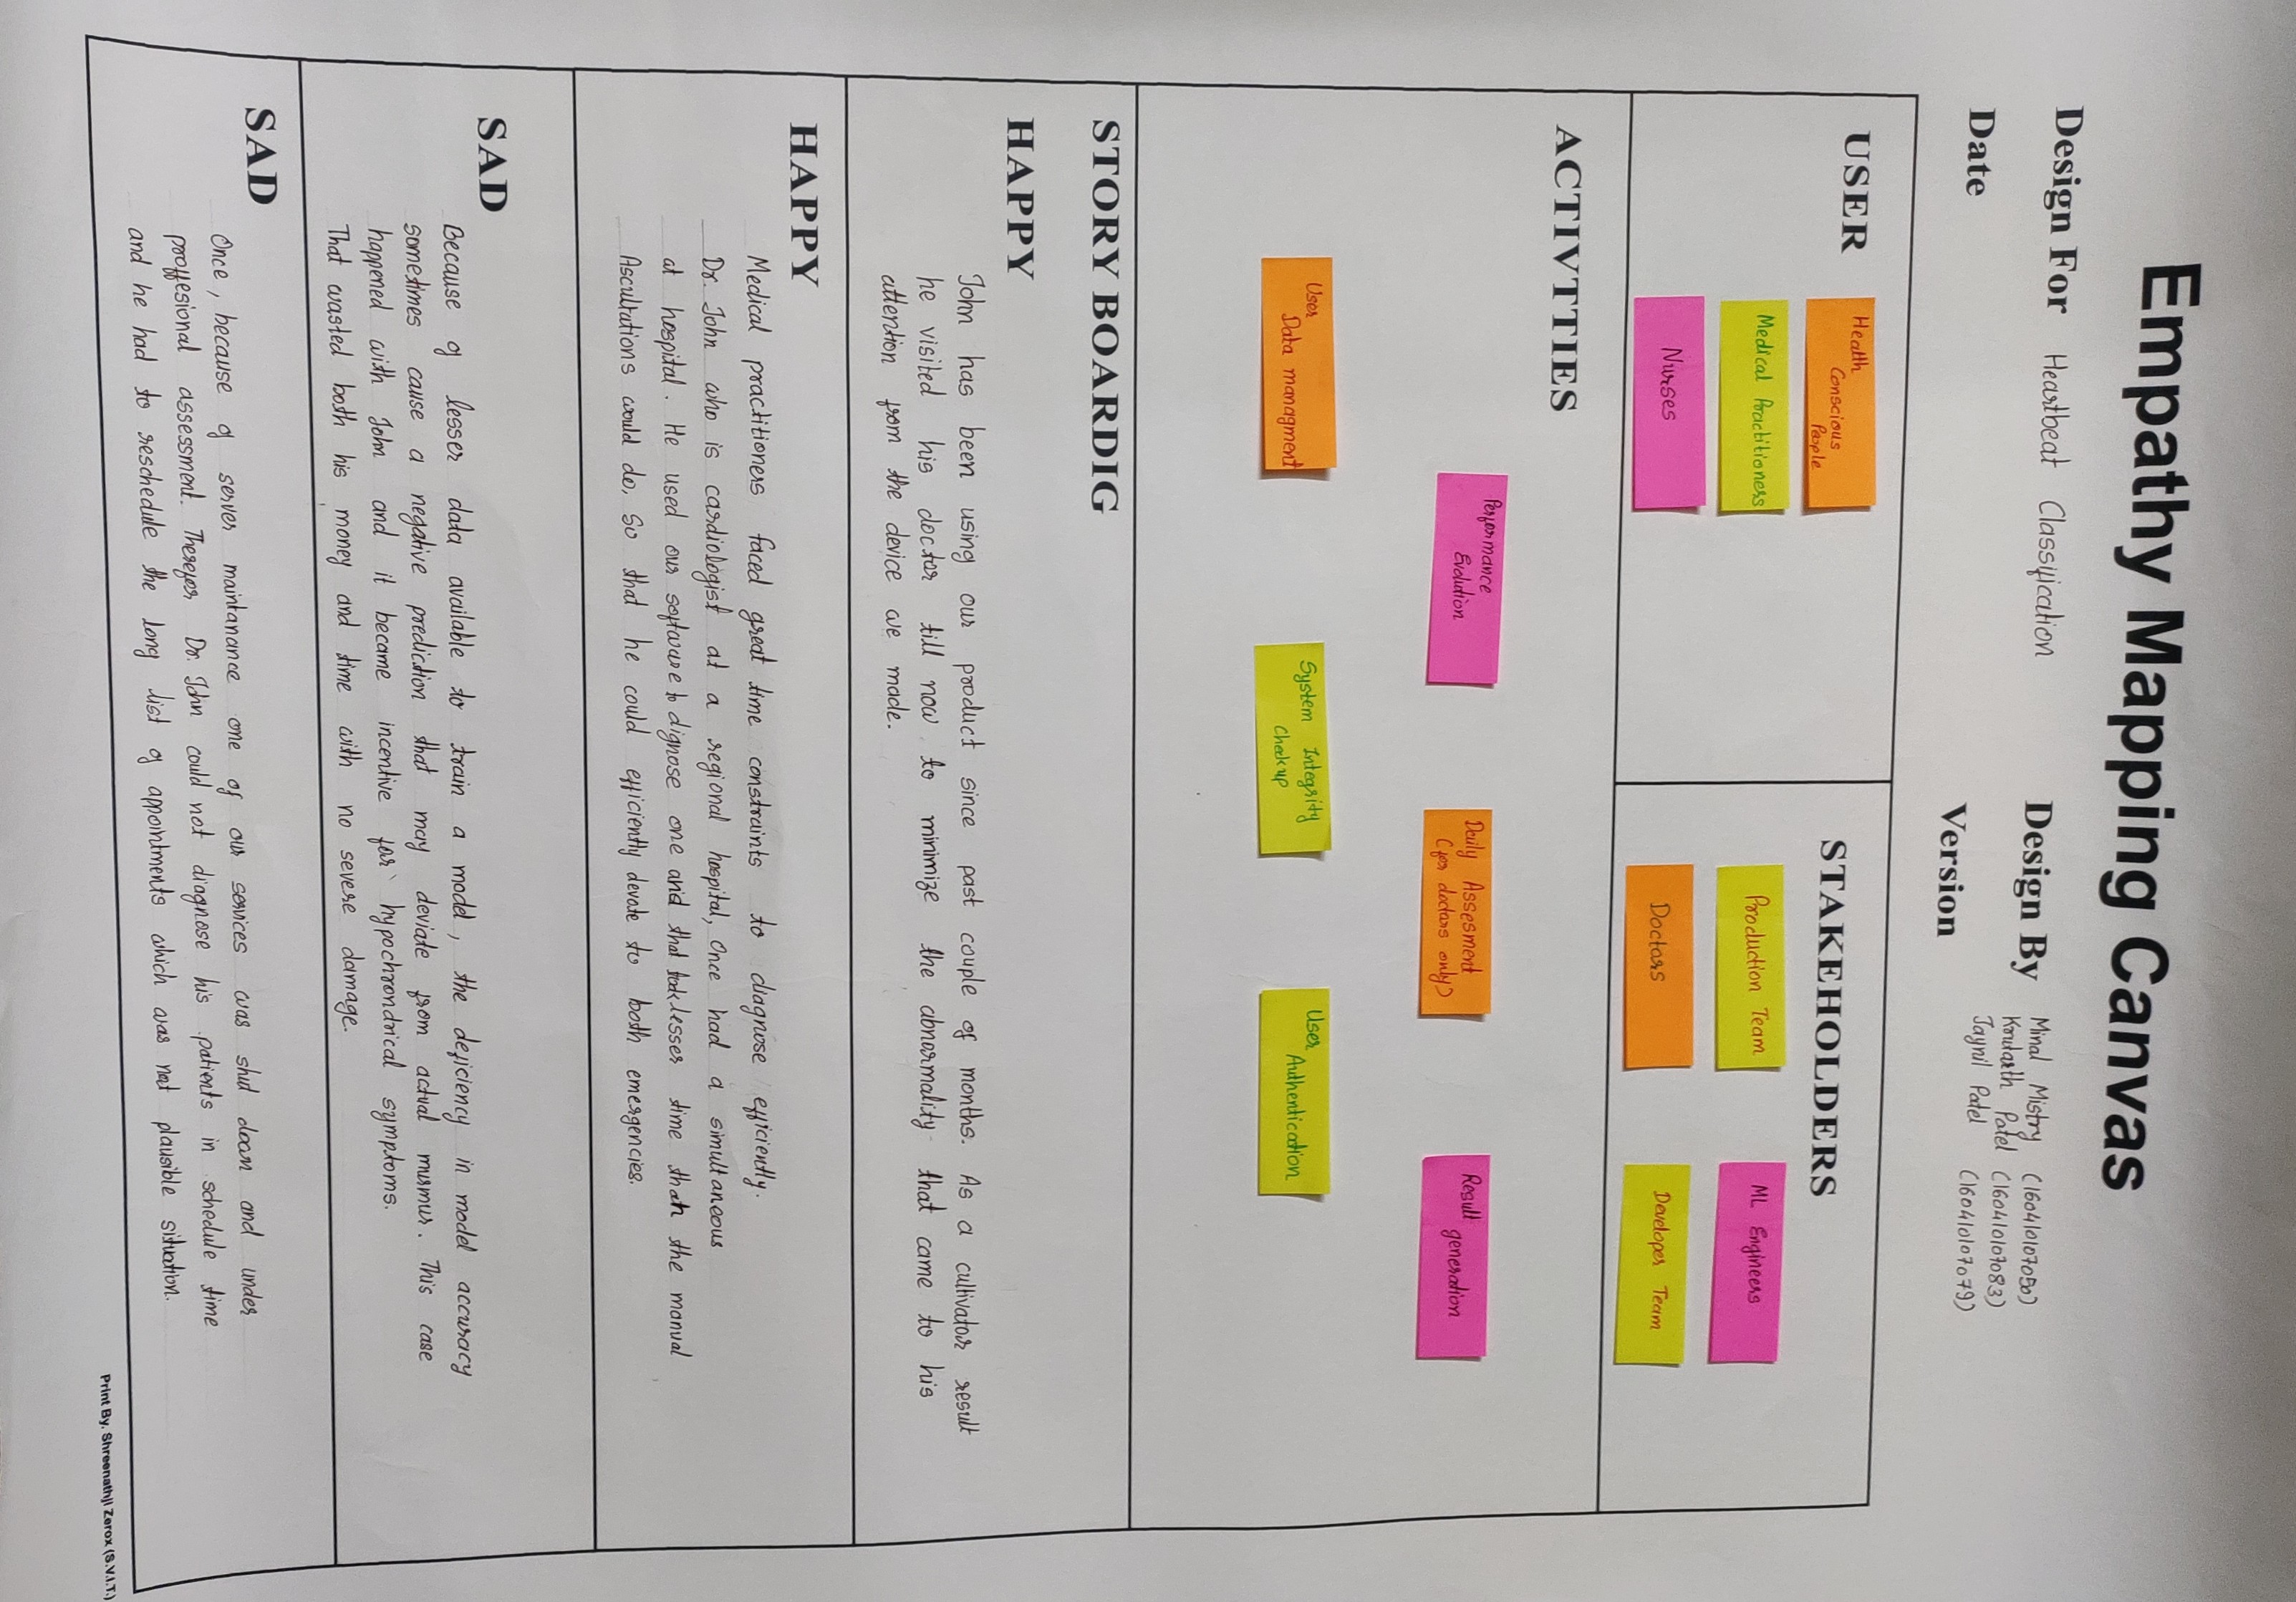 Empathy Mapping Canvas
Design For Heartbeat Classification
Design By Minal Mistry (160410107050)
Krutarth Patel (160410107083)
Jaynil Patel (160410107079)
Date
Version
USER
Health
Conscious
People
Medical Practitioners
Nurses
STAKEHOLDERS
Production Team
ML Engineers
Doctors
Developer Team
ACTIVTTIES
Performance
Evolution
Daily Assesment
(for doctors only)
Result
generation
User
Data managment
System Integrity
Checkup
User
Authentication
STORY BOARDIG
HAPPY
John has been using our product since past couple of months. As a cultivator result
he visited his doctor till now to minimize the abnormality that came to his
attention from the device we made.
HAPPY
Medical practitioners faced great time constraints to diagnose efficiently.
Dr. John who is cardiologist at a regional hospital, Once had a simultaneous
at hospital. He used our software to dignose one and that took lesser time than the manual
Ascultations would do. So that he could efficiently devote to both emergencies.
SAD
Because of lesser data available to train a model, the deficiency in model accuracy
sometimes cause a negative prediction that may deviate from actual murmur. This case
happened with John and it became incentive for hypochrondrical symptoms.
That wasted both his money and time with no severe damage.
SAD
Once, because of server maintanance one of our services was shut down and under
proffesional assessment. Therefor Dr. John could not diagnose his patients in schedule time
and he had to reschedule the long list of appointments which was not plausible situation.
Print By. Shreenathji Zerox (S.V.I.T.)